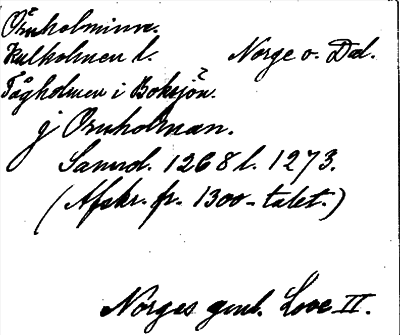 Ornholminn.
Kulholmen l. Norge o. Dal.
Fågholmen i Boksjön.
j Ornholman.
Samrd. 1268 l. 1273.
(Afskr. fr. 1300-talet.)
Norges gml. Love II.